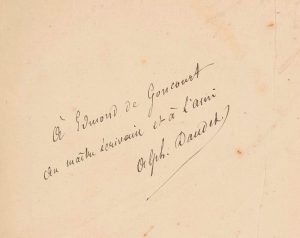 À Edmond de Goncourt
au maître écrivain et à l'ami
Alph. Daudet